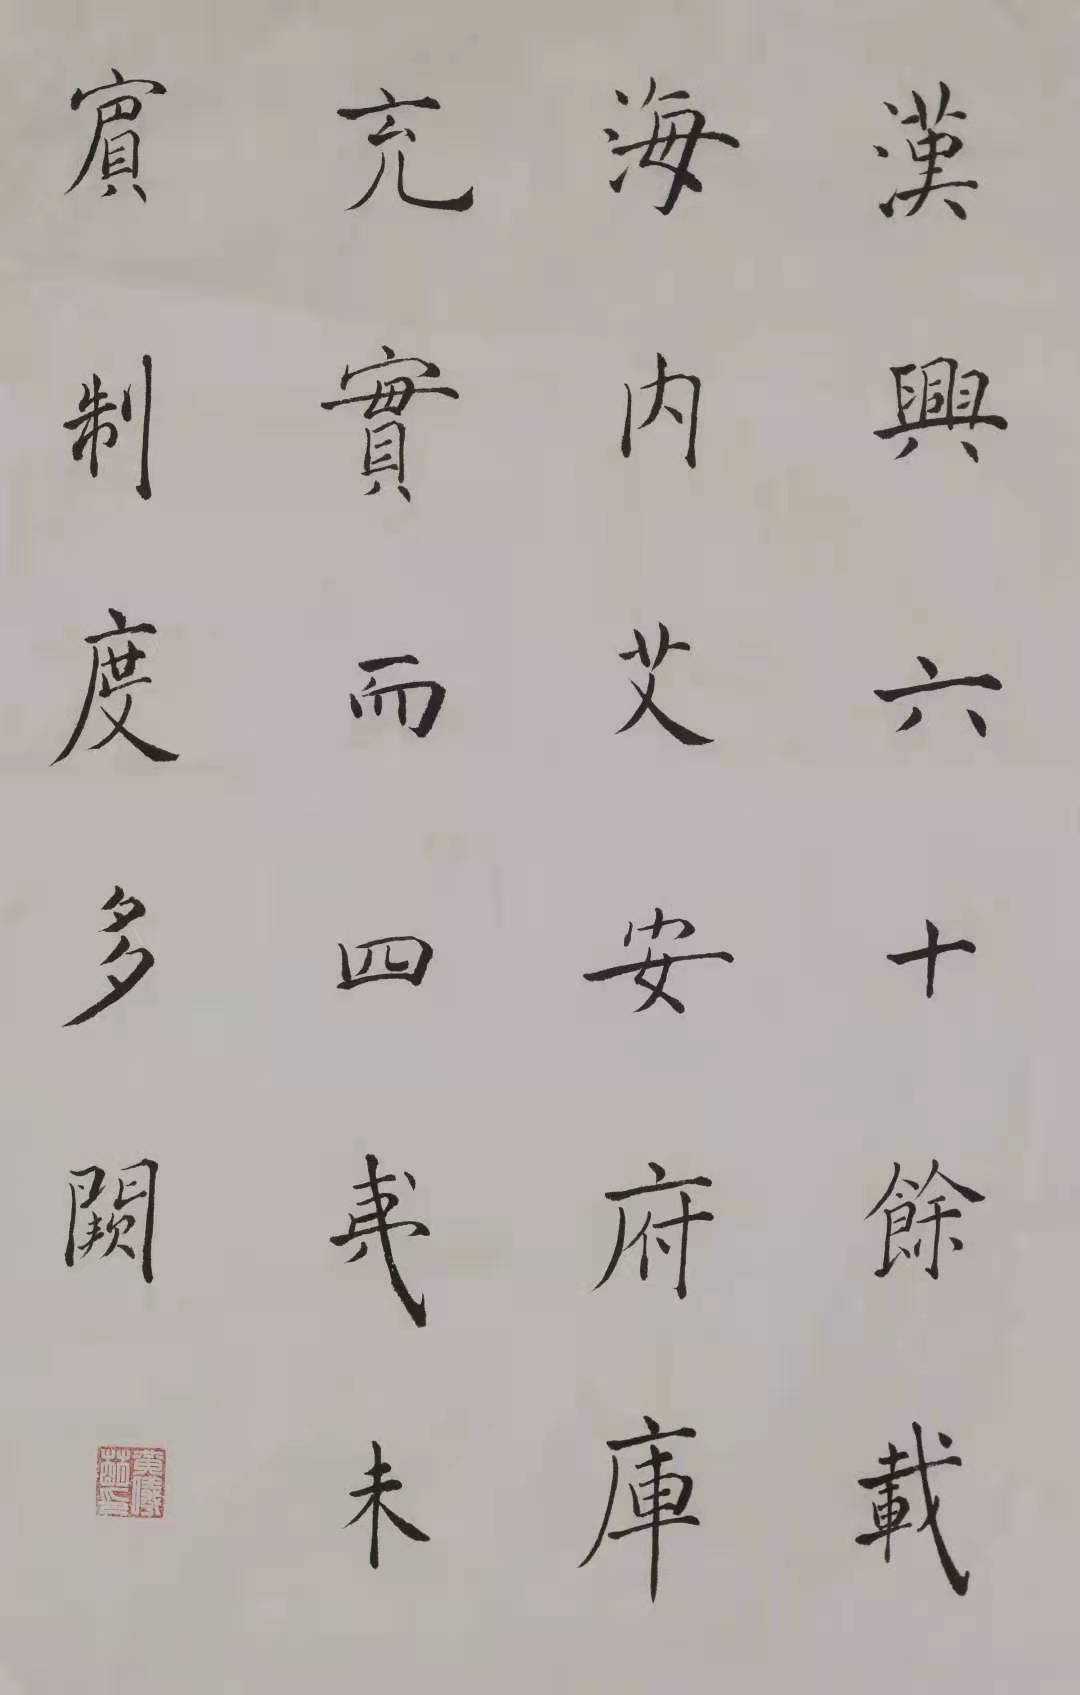 漢興六十餘載
海内艾安府庫
充實而四夷未
賓制度多闕